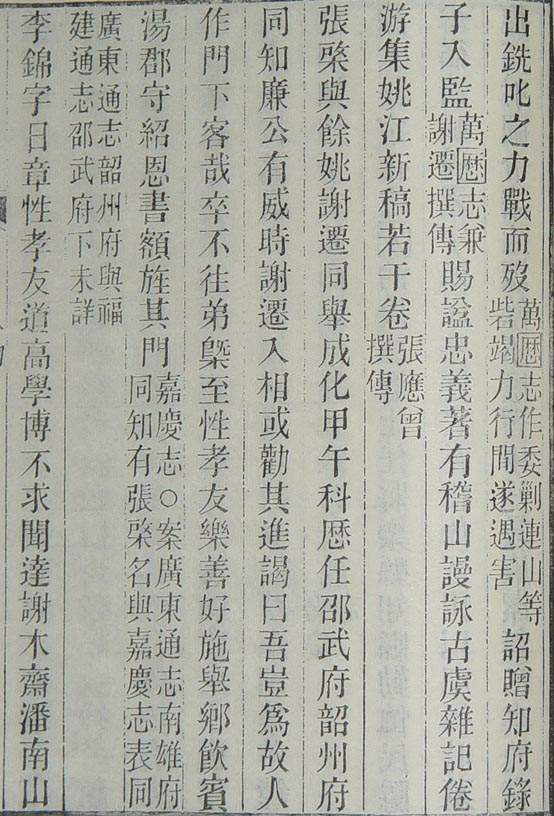 出銑叱之力戰而歿萬厯志作委剿連山等砦竭力行間遂遇害詔贈知府錄
子入監萬厯志兼謝遷撰傳賜諡忠義著有稽山謾詠古虞雜記倦
游集姚江新稿若干卷張應曾撰傳
張棨與餘姚謝遷同舉成化甲午科厯任邵武府韶州府
同知廉公有威時謝遷入相或勸其進謁曰吾豈爲故人
作門下客哉卒不往弟槩至性孝友樂善好施舉鄉飲賓
湯郡守紹恩書額旌其門嘉慶志○案廣東通志南雄府同知有張棨名與嘉慶志表同
廣東通志韶州府與福建通志邵武府下未詳
李錦字日章性孝友道高學博不求聞達謝木齋潘南山